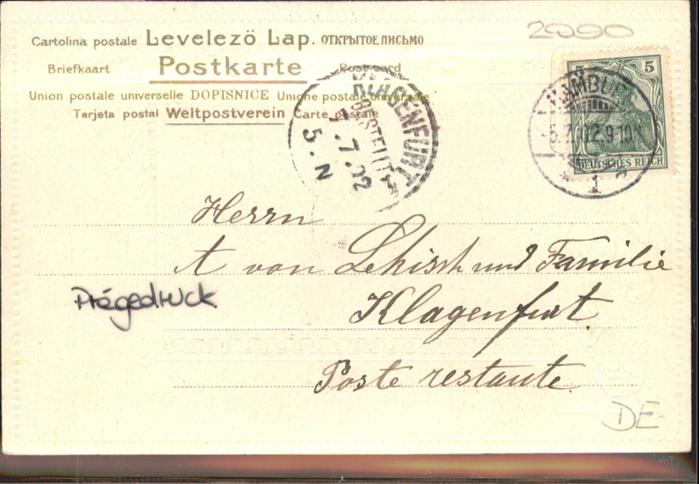 2000
Cartolina postale Levelező Lap. ОТКРЫТОЕ ПИСЬМО
Briefkaart Postkarte Post card
Union postale universelle DOPISNICE Unione postale universale
Tarjeta postal Weltpostverein Carte postale
KLAGENFURT
BESTELLT
7.02
5.N
5 5
HAMBURG
1
DEUTSCHES REICH
Herrn
A von und Familie
Klagenfurt.
Prägedruck
Poste restante.
DE